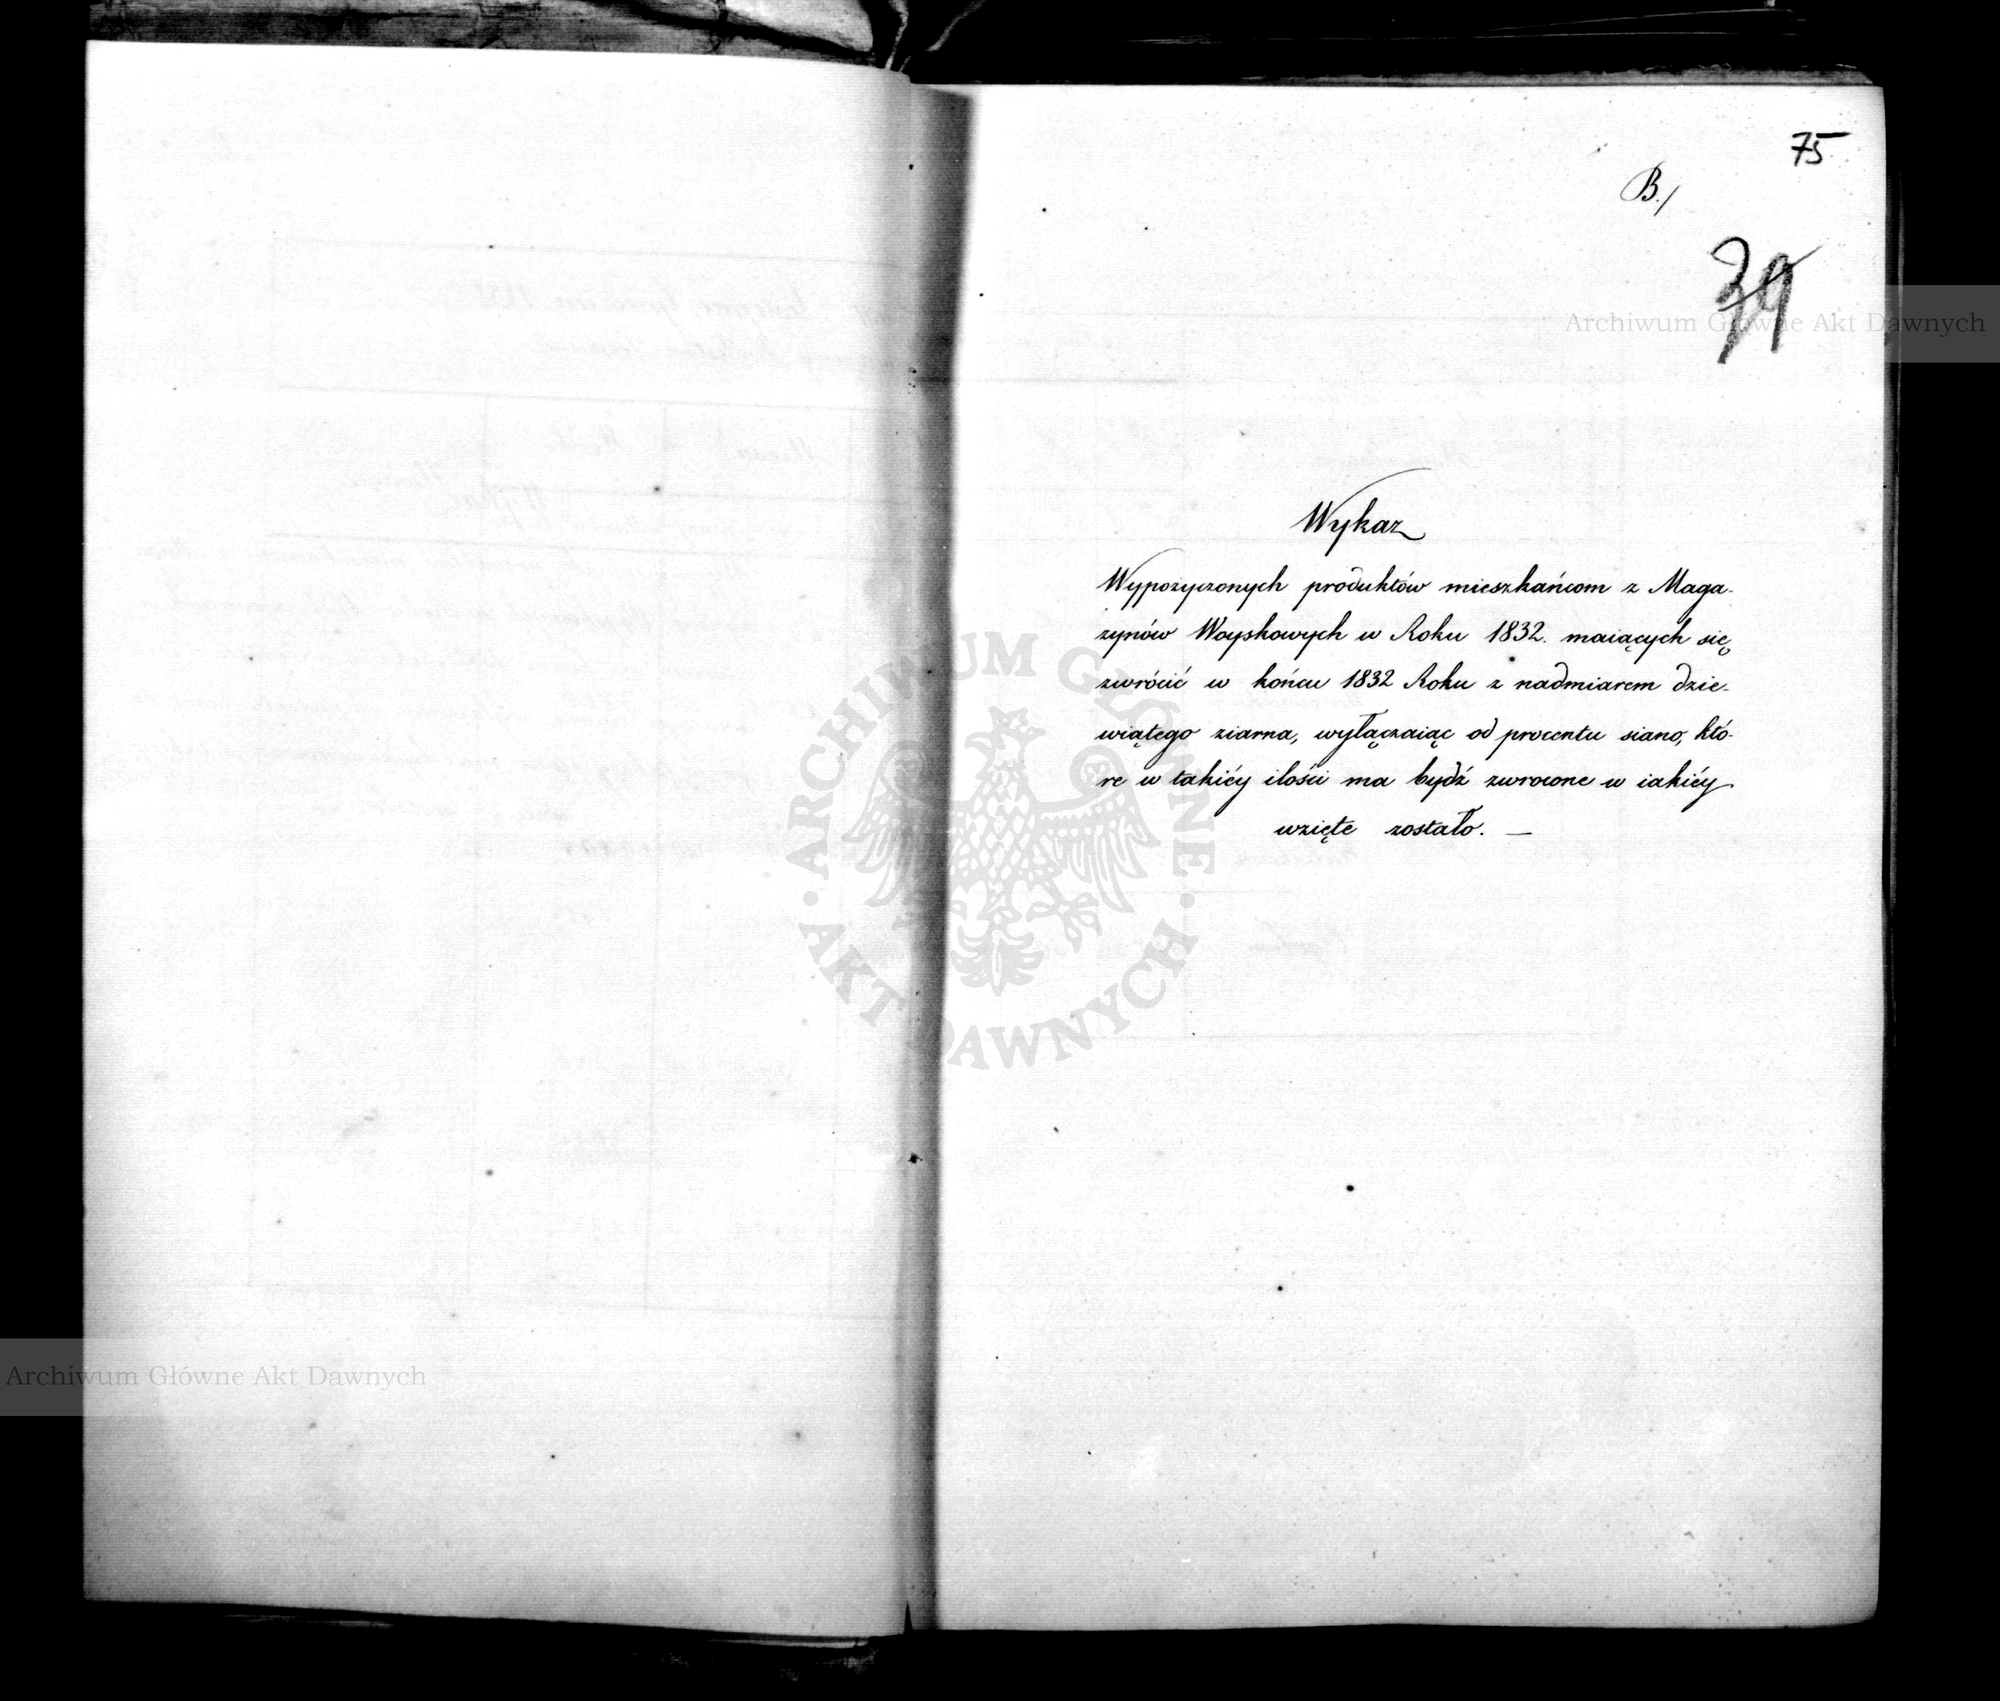 75
B./
39
Wykaz
Wypożyczonych produktów mieszkańcom z Maga-
zynów Woyskowych w Roku 1832. maiących się
zwrócić w końcu 1832 Roku z nadmiarem dzie-
wiątego ziarna, wyłączaiąc od procentu siano, któ-
re w takiéy ilości ma bydź zwrócone w iakiéy
wzięte zostało. —
Archiwum Główne Akt Dawnych
ARCHIWUM GŁÓWNE
AKT DAWNYCH
Archiwum Główne Akt Dawnych